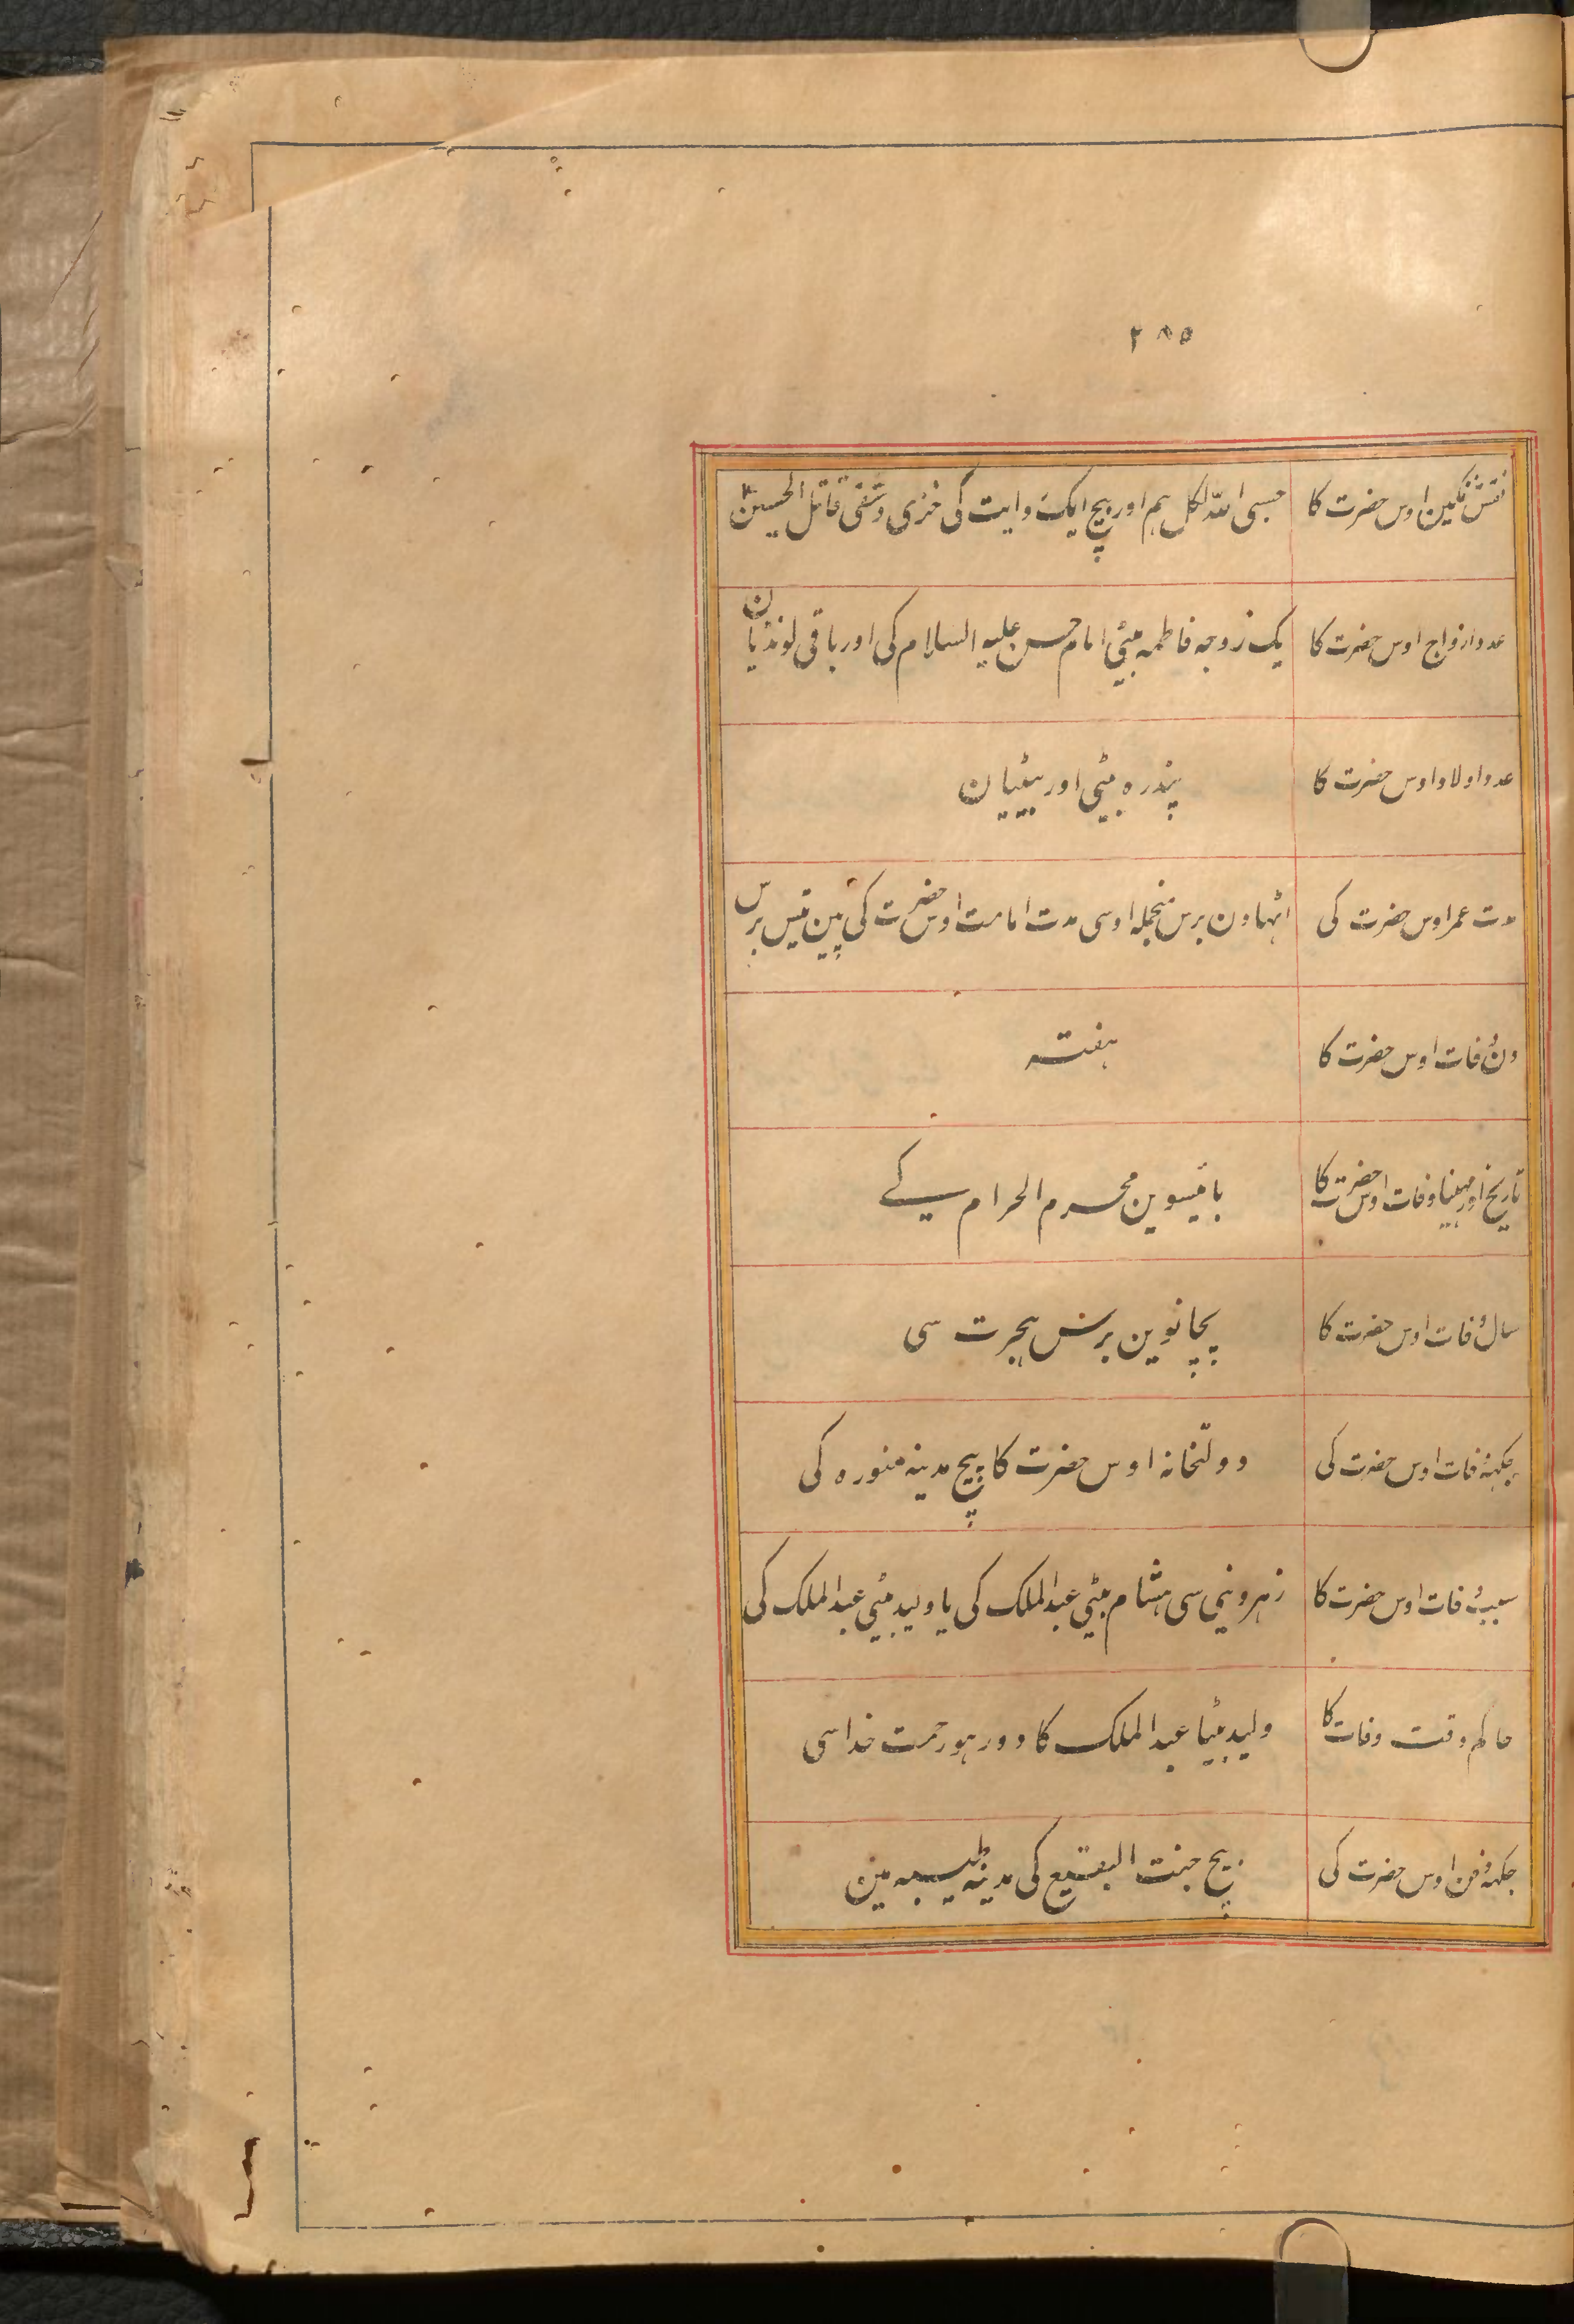 ۲۸۵
نقش نگین اوس حضرت کا حسبی اللہ لکل ہم اور بیچ ایک روایت کی خزی و شقی قاتل الحسین ؑ
عدد ازواج اوس حضرت کا یک زوجہ فاطمہ بیٹی امام حسن علیہ السلام کی اور باقی لونڈیان
عدد اولاد اوس حضرت کا پندرہ بیٹی اور بیٹیان
مدت عمر اوس حضرت کی اٹہاون برس منجملہ اوسی مدت امامت اوس حضرت کی پین تیس برس
دن وفات اوس حضرت کا ہفتہ
تاریخ اور مہینا وفات اوس حضرت کا بائیسوین محرم الحرام کے
سال وفات اوس حضرت کا پچانوین برس ہجرت سی
جگہہ وفات اوس حضرت کی دولتخانہ اوس حضرت کا بیچ مدینہ منورہ کی
سبب وفات اوس حضرت کا زہر دینی سی ہشام بیٹی عبدالملک کی یا ولید بیٹی عبدالملک کی
حاکم وقت وفات کا ولید بیٹا عبدالملک کا دور ہو رحمت خدا سی
جگہہ دفن اوس حضرت کی بیچ جنت البقیع کی مدینہ طیبہ مین